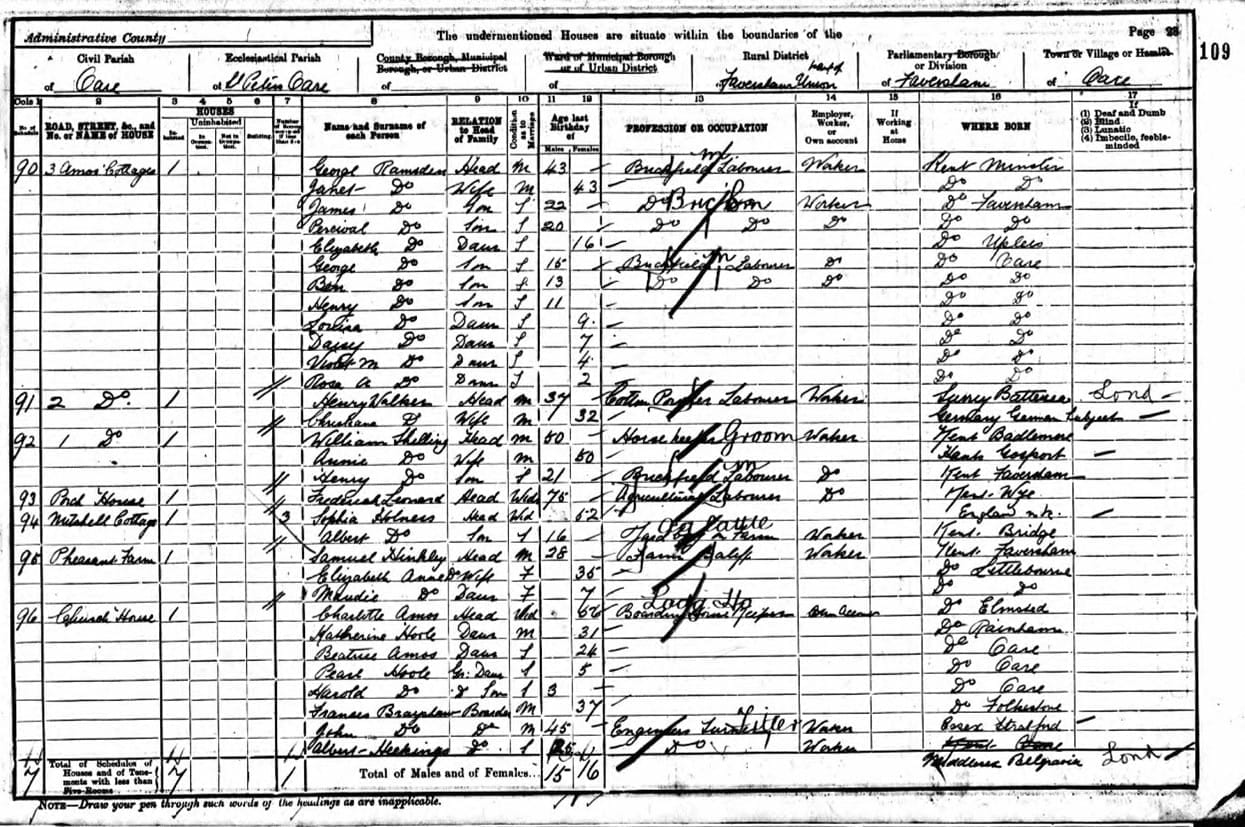 Administrative County
The undermentioned Houses are situate within the boundaries of the
Page 28
109
Civil Parish
of Oare
Ecclesiastical Parish
of St Peters Oare
County Borough, Municipal Borough, or Urban District
of
Ward of Municipal Borough or of Urban District
of
Rural District
of Faversham Union part
Parliamentary Borough or Division
of Faversham
Town or Village or Hamlet
of Oare
Cols 1 2 3 4 5 6 7 8 9 10 11 12 13 14 15 16 17
No. of Schedule
ROAD, STREET, &c., and No. or NAME of HOUSE
HOUSES
Inhabited
Uninhabited
In Occupation.
Not in Occupation.
Building
Name and Surname of each Person
RELATION to Head of Family
Condition as to Marriage
Age last Birthday of
Males
Females
PROFESSION OR OCCUPATION
Employer, Worker, or Own account
If Working at Home
WHERE BORN
If
(1) Deaf and Dumb
(2) Blind
(3) Lunatic
(4) Imbecile, feeble-minded
90 3 Amos Cottages 1 George Ramsden Head M 43 Brickfield Labourer Worker Kent Minster
Janet Do Wife M 43 Do Do
James Do Son S 22 Do Worker Do Faversham
Percival Do Son S 20 Do Do Do Do Do
Elizabeth Do Daur S 16 Do Uplees
George Do Son S 15 Brickfield Labourer Do Do Oare
Ben Do Son S 13 Do Do Do Do Do
Henry Do Son S 11 Do Do
Louisa Do Daur S 9 Do Do
Daisy Do Daur S 7 Do Do
Violet M Do Daur S 4 Do Do
Rose A Do Daur S 2 Do Do
91 2 Do 1 Henry Walker Head M 37 Cotton Powder Labourer Worker Surrey Battersea Lond
Christiana Wife M 32 Germany German Subject
92 1 Do 1 William Shilling Head M 50 Horse keeper Groom Worker Kent Badlesmere
Annie Do Wife M 50 Hants Gosport
Henry Do Son S 21 Brickfield Labourer Do Kent Faversham
93 House 1 Frederick Leonard Head Wid 75 Agricultural Labourer Do Kent Wye
94 Mitchell Cottage 1 3 Sophia Holness Head Wid 52 England n.k.
Albert Do Son S 16 on Farm Worker Kent Bridge
95 Pheasant Farm 1 Samuel Hinkley Head M 28 Farm Baliff Worker Kent Faversham
Elizabeth Anne Do Wife F 35 Do Littlebourne
Maudie Do Daur F 7 Do Do
96 Church House 1 Charlotte Amos Head Wid 56 Boarding House Keeper Own Account Do Elmsted
Lodg Ho
Katherine Hoole Daur M 31 Do Rainham
Beatrice Amos Daur S 24 Do Oare
Pearl Hoole Gr. Daur S 5 Do Oare
Harold Do Do Son S 3 Do Oare
Frances Boarder M 37 Do Folkestone
John Do Do M 45 Engineers Turner Fitter Worker Essex Stratford
Albert Do S Do Worker Middlesex Belgravia Lond
7 Total of Schedules of Houses and of Tenements with less than Five Rooms 7 1 Total of Males and of Females... 15 16
NOTE—Draw your pen through such words of the headings as are inapplicable.